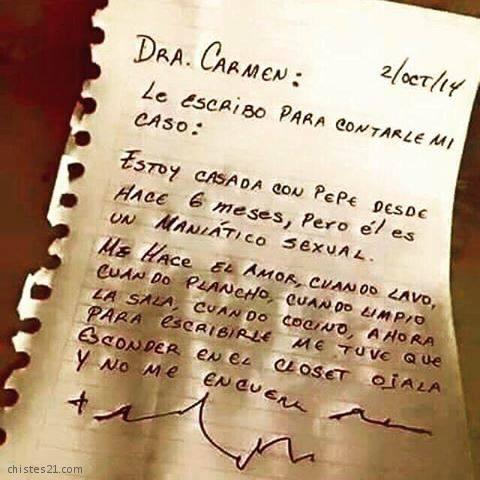 DRA. CARMEN:
2/OCT/14
LE ESCRIBO PARA CONTARLE MI
CASO:
ESTOY CASADA CON PEPE DESDE
HACE 6 MESES, PERO ÉL ES
UN MANIÁTICO SEXUAL.
ME HACE EL AMOR, CUANDO LAVO,
CUANDO PLANCHO, CUANDO LIMPIO
LA SALA, CUANDO COCINO, AHORA
PARA ESCRIBIRLE ME TUVE QUE
ESCONDER EN EL CLOSET OJALA
Y NO ME ENCUEN
chistes21.com